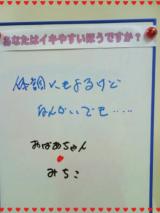 あなたはイキやすいほうですか？
体調にもよるけど
なんかいでも……
おばあちゃん
みちこ